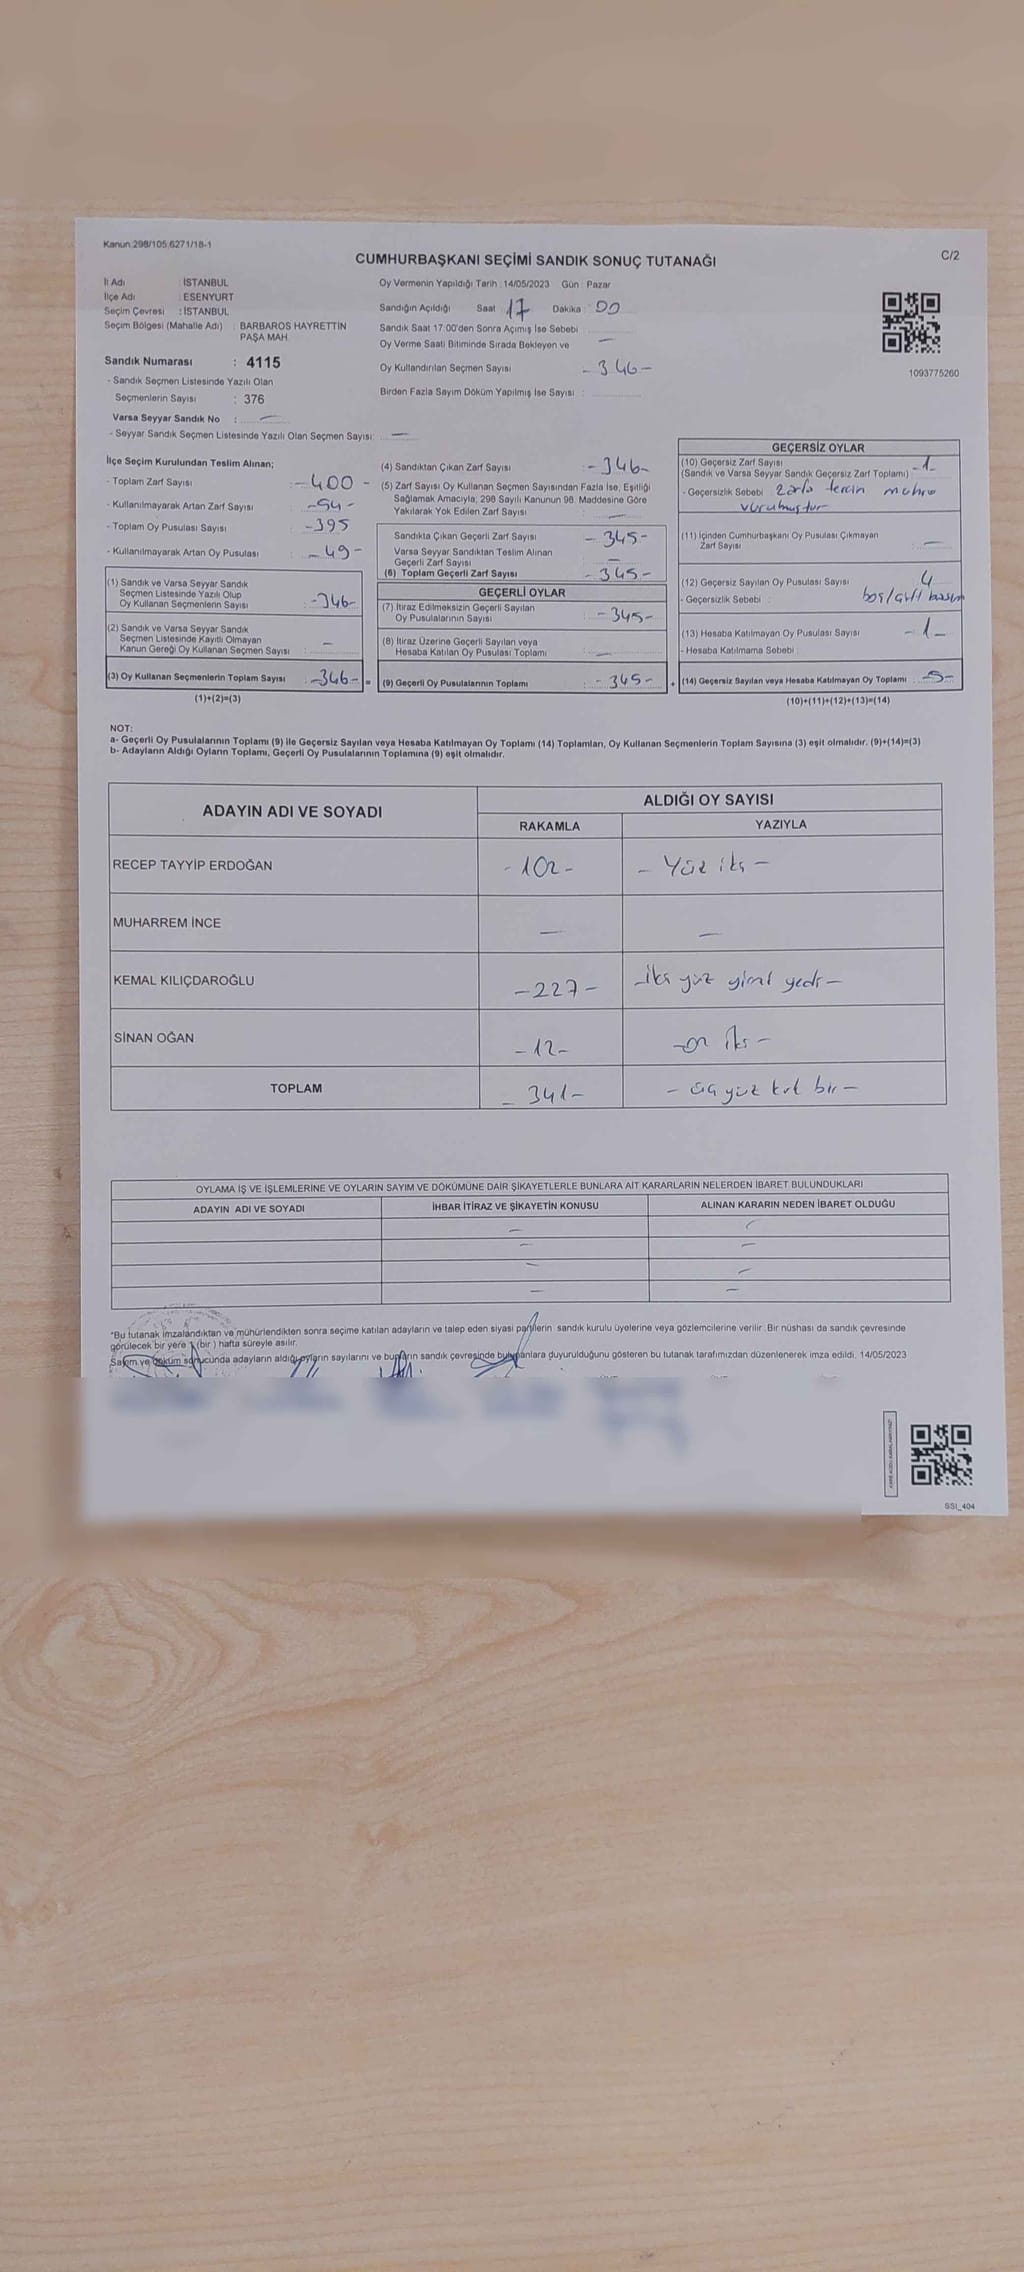 Kanun 298/105;6271/18-1
CUMHURBAŞKANI SEÇİMİ SANDIK SONUÇ TUTANAĞI
C/2
İl Adı : İSTANBUL
İlçe Adı : ESENYURT
Seçim Çevresi : İSTANBUL
Seçim Bölgesi (Mahalle Adı) : BARBAROS HAYRETTİN
PAŞA MAH.
Sandık Numarası : 4115
- Sandık Seçmen Listesinde Yazılı Olan
Seçmenlerin Sayısı : 376
Varsa Seyyar Sandık No : —
- Seyyar Sandık Seçmen Listesinde Yazılı Olan Seçmen Sayısı: —
Oy Vermenin Yapıldığı Tarih : 14/05/2023 Gün : Pazar
Sandığın Açıldığı Saat : 17 Dakika : 00
Sandık Saat 17:00'den Sonra Açımış İse Sebebi :
Oy Verme Saati Bitiminde Sırada Bekleyen ve —
Oy Kullandırılan Seçmen Sayısı - 346 -
Birden Fazla Sayım Döküm Yapılmış İse Sayısı :
1093775260
İlçe Seçim Kurulundan Teslim Alınan;
- Toplam Zarf Sayısı : - 400 -
- Kullanılmayarak Artan Zarf Sayısı : - 54 -
- Toplam Oy Pusulası Sayısı : - 395
- Kullanılmayarak Artan Oy Pusulası : - 49 -
(1) Sandık ve Varsa Seyyar Sandık
Seçmen Listesinde Yazılı Olup
Oy Kullanan Seçmenlerin Sayısı : - 346 -
(2) Sandık ve Varsa Seyyar Sandık
Seçmen Listesinde Kayıtlı Olmayan
Kanun Gereği Oy Kullanan Seçmen Sayısı : —
(3) Oy Kullanan Seçmenlerin Toplam Sayısı : - 346 - =
(1)+(2)=(3)
(4) Sandıktan Çıkan Zarf Sayısı : - 346 -
(5) Zarf Sayısı Oy Kullanan Seçmen Sayısından Fazla İse, Eşitliği
Sağlamak Amacıyla, 298 Sayılı Kanunun 98. Maddesine Göre
Yakılarak Yok Edilen Zarf Sayısı : —
Sandıkta Çıkan Geçerli Zarf Sayısı : - 345 -
Varsa Seyyar Sandıktan Teslim Alınan
Geçerli Zarf Sayısı : —
(6) Toplam Geçerli Zarf Sayısı : - 345 -
GEÇERLİ OYLAR
(7) İtiraz Edilmeksizin Geçerli Sayılan
Oy Pusulalarının Sayısı : - 345 -
(8) İtiraz Üzerine Geçerli Sayılan veya
Hesaba Katılan Oy Pusulası Toplamı : —
(9) Geçerli Oy Pusulalarının Toplamı : - 345 - +
GEÇERSİZ OYLAR
(10) Geçersiz Zarf Sayısı
(Sandık ve Varsa Seyyar Sandık Geçersiz Zarf Toplamı) : - 1 -
- Geçersizlik Sebebi : zarfa tercin mührü
vurulmuştur
(11) İçinden Cumhurbaşkanı Oy Pusulası Çıkmayan
Zarf Sayısı : —
(12) Geçersiz Sayılan Oy Pusulası Sayısı : 4
- Geçersizlik Sebebi : boş/çift basım
(13) Hesaba Katılmayan Oy Pusulası Sayısı : - 1 -
- Hesaba Katılmama Sebebi :
(14) Geçersiz Sayılan veya Hesaba Katılmayan Oy Toplamı : - 5 -
(10)+(11)+(12)+(13)=(14)
NOT:
a- Geçerli Oy Pusulalarının Toplamı (9) ile Geçersiz Sayılan veya Hesaba Katılmayan Oy Toplamı (14) Toplamları, Oy Kullanan Seçmenlerin Toplam Sayısına (3) eşit olmalıdır. (9)+(14)=(3)
b- Adayların Aldığı Oyların Toplamı, Geçerli Oy Pusulalarının Toplamına (9) eşit olmalıdır.
ADAYIN ADI VE SOYADI ALDIĞI OY SAYISI
RAKAMLA YAZIYLA
RECEP TAYYİP ERDOĞAN - 102 - - Yüz iki -
MUHARREM İNCE — —
KEMAL KILIÇDAROĞLU - 227 - - iki yüz yirmi yedi -
SİNAN OĞAN - 12 - - on iki -
TOPLAM - 341 - - üç yüz kırk bir -
OYLAMA İŞ VE İŞLEMLERİNE VE OYLARIN SAYIM VE DÖKÜMÜNE DAİR ŞİKAYETLERLE BUNLARA AİT KARARLARIN NELERDEN İBARET BULUNDUKLARI
ADAYIN ADI VE SOYADI İHBAR İTİRAZ VE ŞİKAYETİN KONUSU ALINAN KARARIN NEDEN İBARET OLDUĞU
*Bu tutanak imzalandıktan ve mühürlendikten sonra seçime katılan adayların ve talep eden siyasi partilerin sandık kurulu üyelerine veya gözlemcilerine verilir. Bir nüshası da sandık çevresinde
görülecek bir yere 1 (bir) hafta süreyle asılır.
Sayım ve döküm sonucunda adayların aldığı oyların sayılarını ve bunların sandık çevresinde bulunanlara duyurulduğunu gösteren bu tutanak tarafımızdan düzenlenerek imza edildi. 14/05/2023
SSI_404